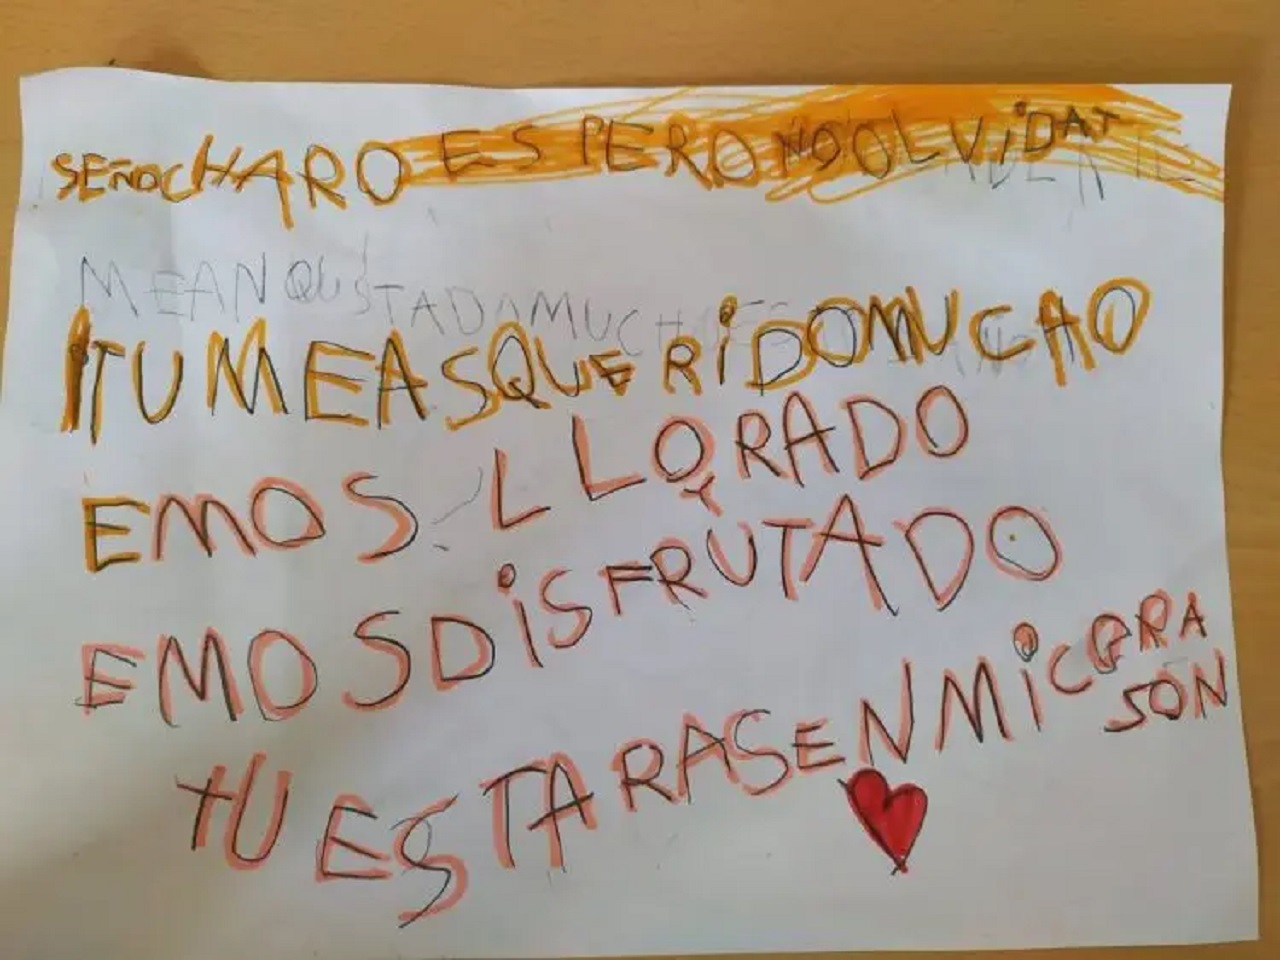 SEÑOCHARO ESPERO NOOLVIDAT
MEAN GUSTADAMUCH
ITUMEASQUERiDOMUCAO
EMOS LLORADO
Y
EMOSDiSFRUTADO
TUESTARASENMiCORA
SON